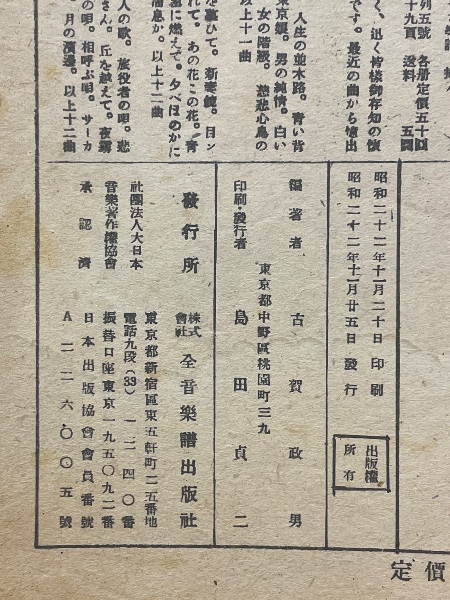 列五號 各册定價五十圓
十九頁 送料 五圓
く、迅く皆樣御存知の懷
です。最近の曲から憶出
人生の並木路。青い背
東京娘。男の純情。白い
女の階級。慈悲心鳥の
以上十一曲
を慕ひて。新寒鏡。日ン
れて。あの花この花。青
に燃えて。夕べほのかに
息か。以上十二曲
人の歌。旅役者の唄。悲
さん。丘を越えて。夜霧
の唄。相呼ぶ唄。サーカ
。月の濱邊。以上十二曲
昭和二十二年十一月二十日 印刷
昭和二十二年十一月廿五日 發行
出版權
所有
編著者 古賀政男
東京都中野區桃園町三九
印刷・發行者 島田貞二
發行所 株式會社 全音樂譜出版社
東京都新宿區東五軒町二五番地
電話九段(33)一二四〇番
振替口座東京一九五〇九二番
日本出版協會會員番號
A二二六〇〇五號
社團法人大日本
音樂著作權協會
承認濟
定價